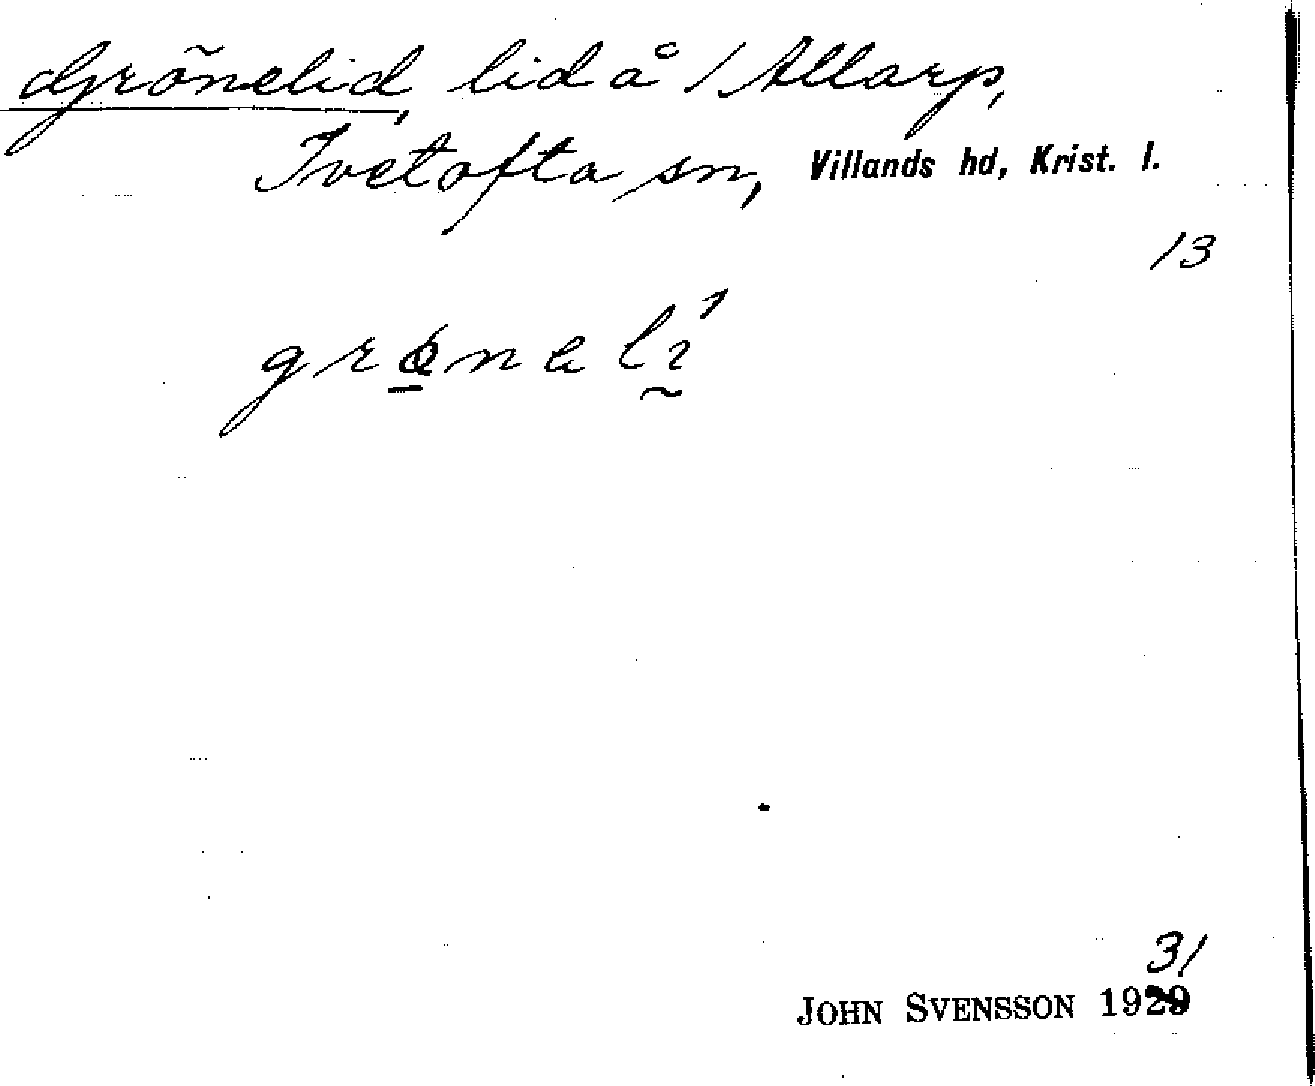 Grönelid, lid å 1 Allarp,
Ivetofta sn, Villands hd, Krist. l.
13
grø̱nəlı̰́
31
JOHN SVENSSON 1929